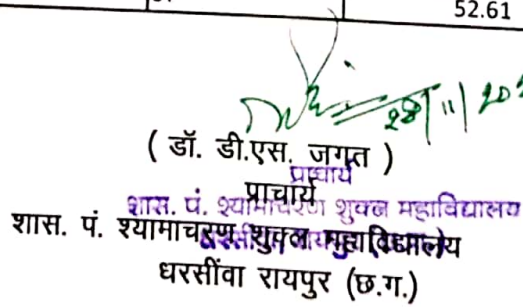 52.61
28/11/202
( डॉ. डी.एस. जगत )
प्राचार्य
प्राचार्य
शास. पं. श्यामाचरण शुक्ल महाविद्यालय
शास. पं. श्यामाचरण शुक्ल महाविद्यालय
धरसींवा रायपुर (छ.ग.)